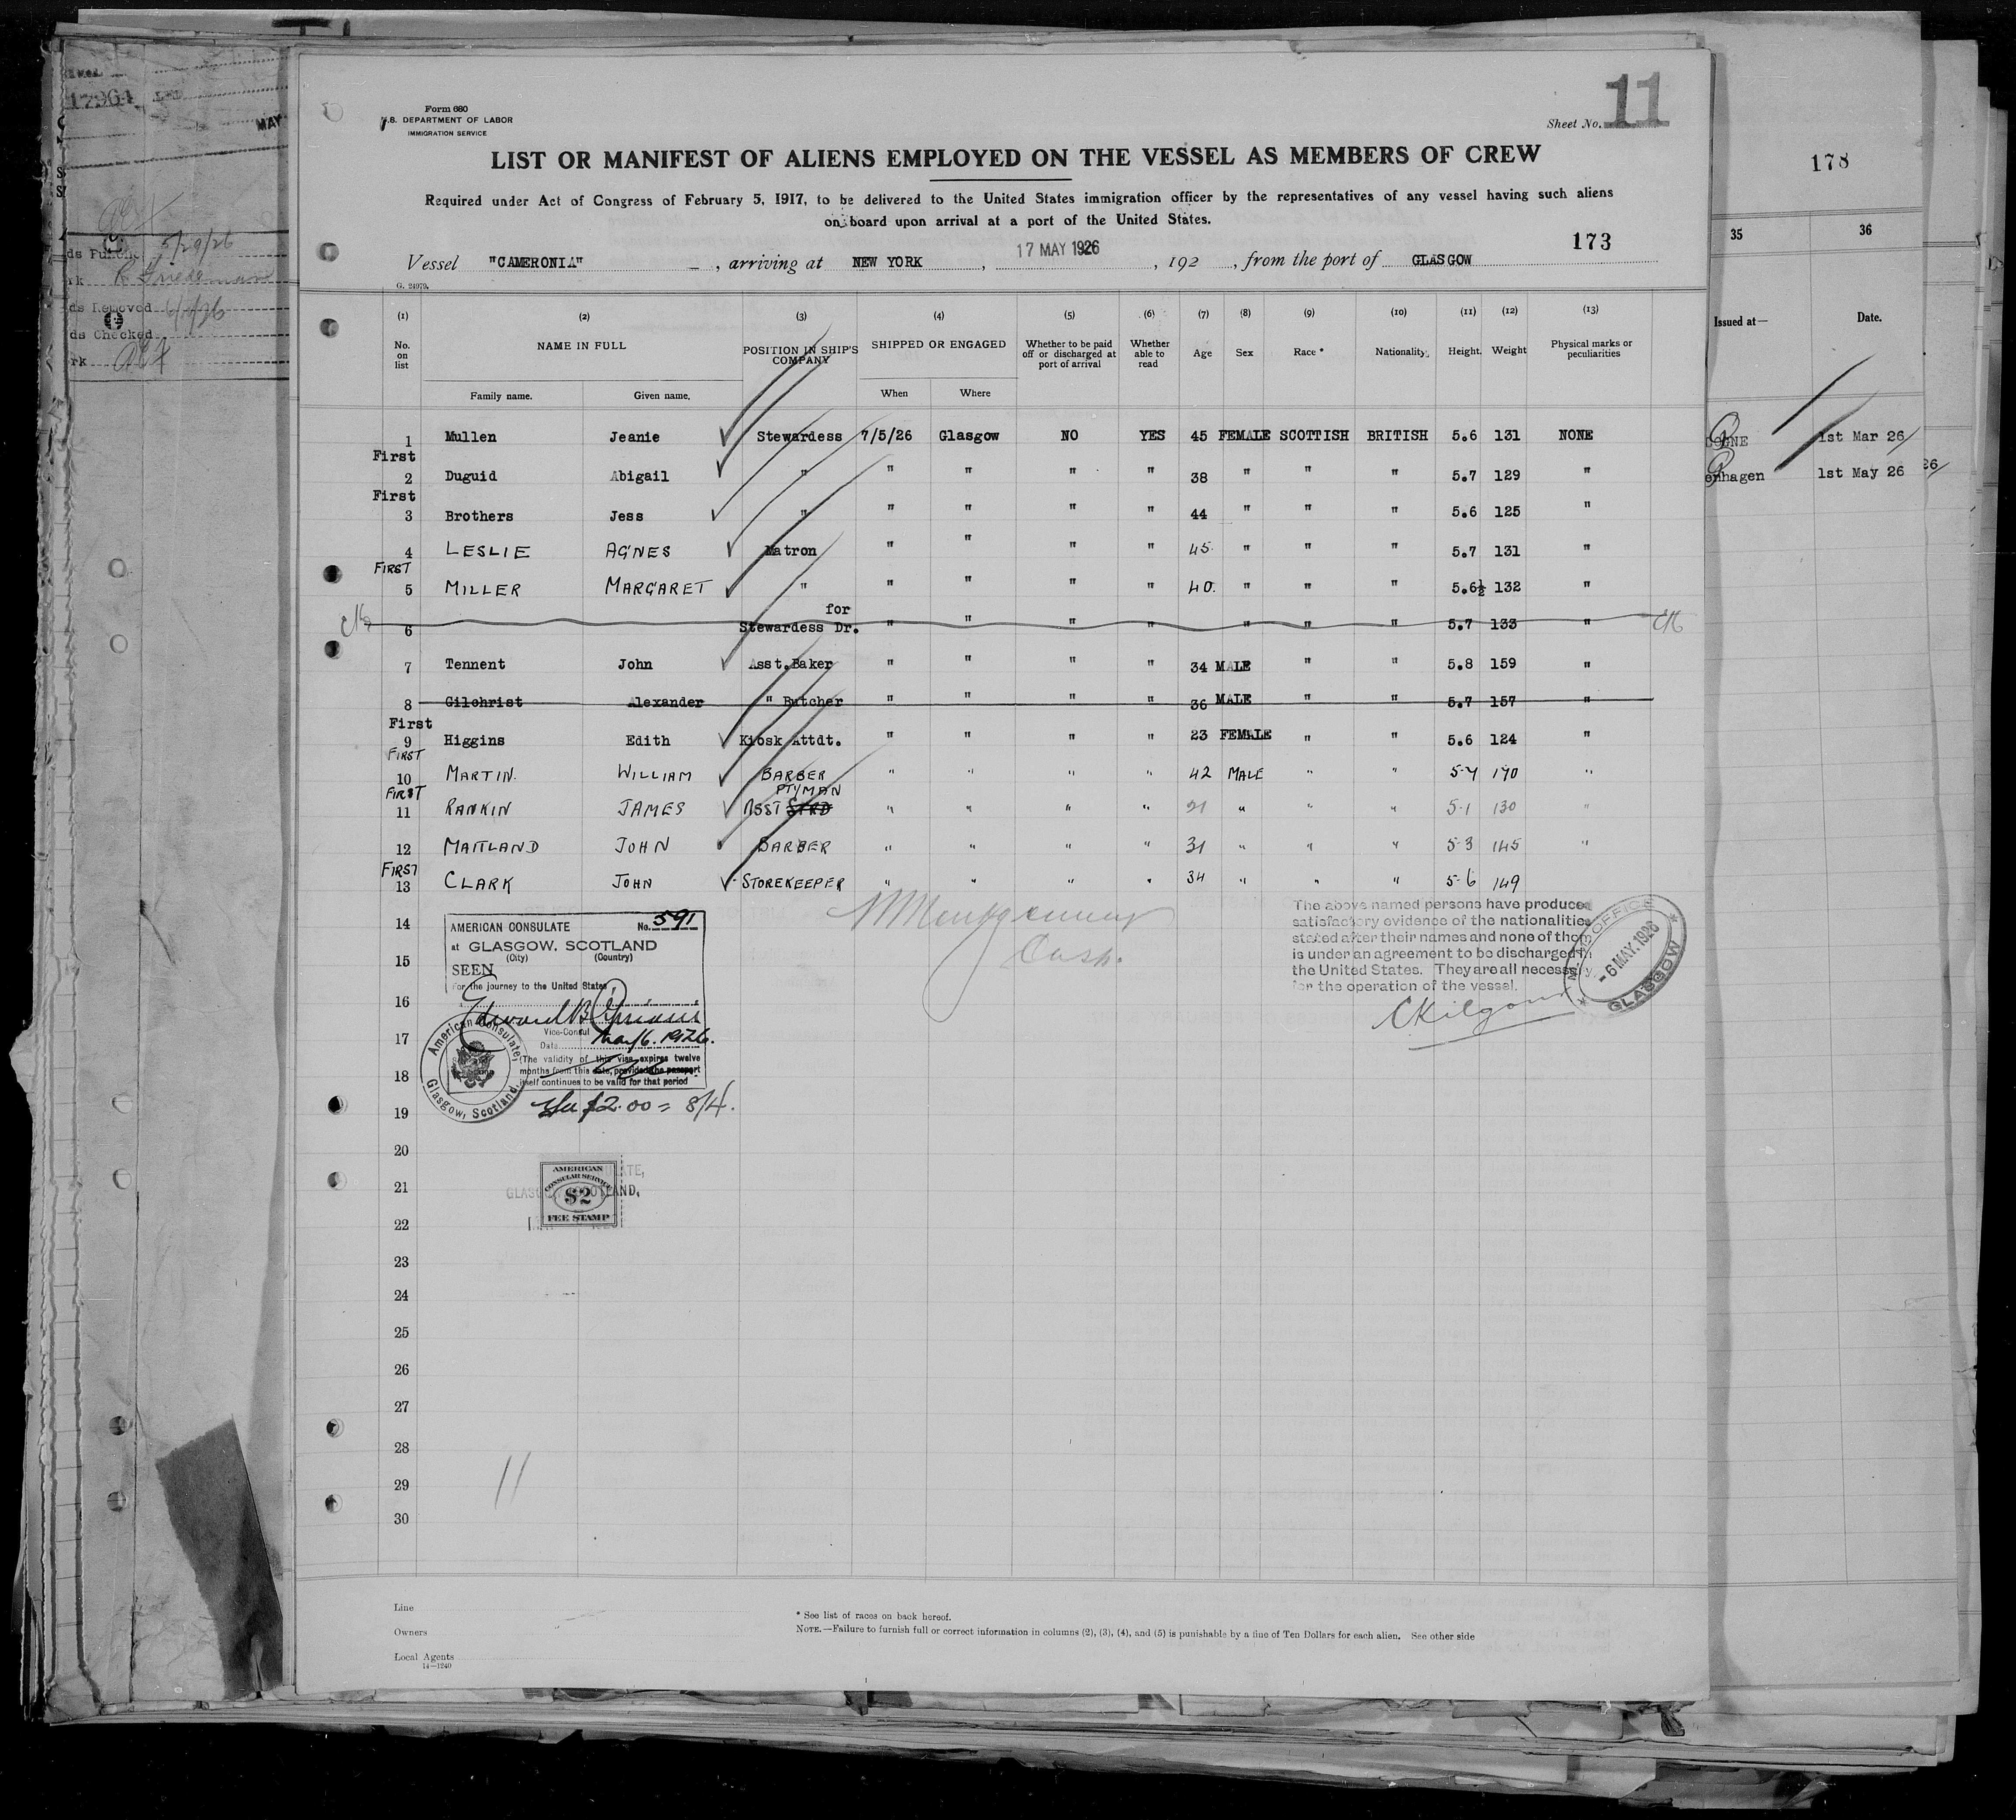 11
Form 680
U.S. DEPARTMENT OF LABOR
IMMIGRATION SERVICE
Sheet No. 11
LIST OR MANIFEST OF ALIENS EMPLOYED ON THE VESSEL AS MEMBERS OF CREW
Required under Act of Congress of February 5, 1917, to be delivered to the United States immigration officer by the representatives of any vessel having such aliens
on board upon arrival at a port of the United States.
173
17 MAY 1926
Vessel "CAMERONIA", arriving at NEW YORK, , 192 , from the port of GLASGOW
G. 24979.
(1) (2) (3) (4) (5) (6) (7) (8) (9) (10) (11) (12) (13)
No. on list NAME IN FULL POSITION IN SHIP'S COMPANY SHIPPED OR ENGAGED Whether to be paid off or discharged at port of arrival Whether able to read Age Sex Race * Nationality Height Weight Physical marks or peculiarities
Family name. Given name. When Where
1 Mullen Jeanie Stewardess 7/5/26 Glasgow NO YES 45 FEMALE SCOTTISH BRITISH 5.6 131 NONE
First
2 Duguid Abigail " " " " " 38 " " " 5.7 129 "
First
3 Brothers Jess " " " " " 44 " " " 5.6 125 "
4 LESLIE AGNES Matron " " " " 45 " " " 5.7 131 "
FIRST
5 MILLER MARGARET " " " " " 40. " " " 5.6½ 132 "
for
6 Stewardess Dr. " " " " " " " 5.7 133 "
7 Tennent John Asst.Baker " " " " 34 MALE " " 5.8 159 "
8 Gilchrist Alexander " Butcher " " " " 36 MALE " " 5.7 157 "
First
9 Higgins Edith Kiosk Attdt. " " " " 23 FEMALE " " 5.6 124 "
FIRST
10 MARTIN. WILLIAM BARBER " " " " 42 MALE " " 5-7 170 "
FIRST PTYMAN
11 RANKIN JAMES ASST STRD " " " " 21 " " " 5-1 130 "
12 MAITLAND JOHN BARBER " " " " 31 " " " 5-3 145 "
FIRST
13 CLARK JOHN STOREKEEPER " " " " 34 " " " 5-6 149
14
15
16
17
18
19
20
21
22
23
24
25
26
27
28
29
30
AMERICAN CONSULATE No. 591
at GLASGOW, SCOTLAND
(City) (Country)
SEEN
For the journey to the United States
Vice-Consul
Date May 6. 1926.
The validity of this visa expires twelve
months from this date, provided the passport
itself continues to be valid for that period
American Consulate, Glasgow, Scotland.
$2.00 = 8/4.
AMERICAN
CONSULAR SERVICE
$2
FEE STAMP
GLASGOW, SCOTLAND,
Montgomery
The above named persons have produced
satisfactory evidence of the nationalities
stated after their names and none of them
is under an agreement to be discharged in
the United States. They are all necessary
for the operation of the vessel.
-6 MAY. 1926
GLASGOW
CKilgour
11
Line
Owners
Local Agents
14—1240
* See list of races on back hereof.
NOTE.—Failure to furnish full or correct information in columns (2), (3), (4), and (5) is punishable by a fine of Ten Dollars for each alien. See other side
17964
MAY
5/29/26
ds Removed
ds Checked
178
35 36
Issued at— Date.
1st Mar 26
enhagen 1st May 26 26